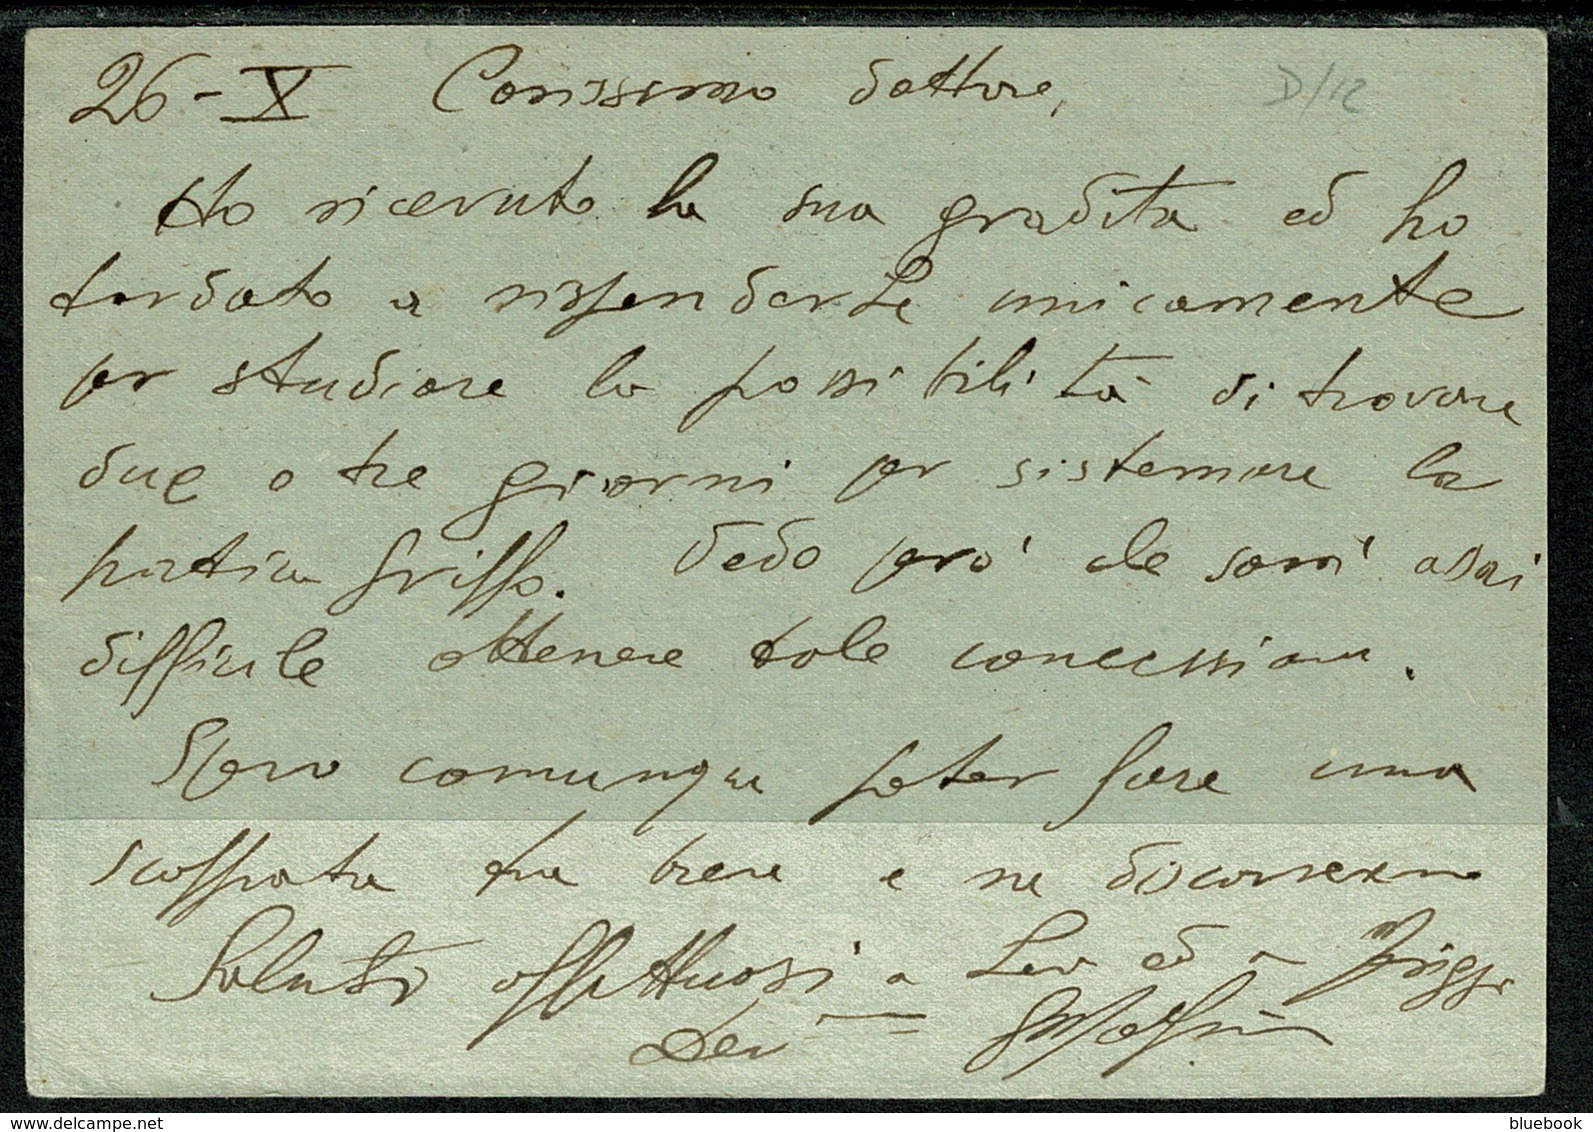 26-X Carissimo dottore,
D/12
Ho ricevuto la sua gradita ed ho
tardato a risponderLe unicamente
per studiare la possibilità di trovare
due o tre giorni per sistemare la
pratica Griffo. Vedo però che sarà assai
difficile ottenere tale concessione.
Spero comunque poter fare una
scappata tra breve e ne discorreremo
Saluti affettuosi a Lei ed a
dev
bluebook